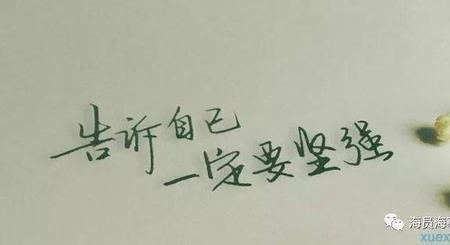 告诉自己
一定要坚强
海员海
xuex